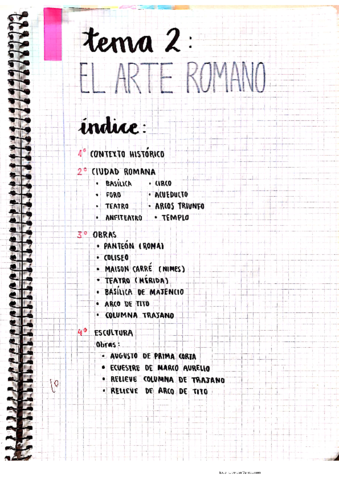 tema 2:
EL ARTE ROMANO
índice:
1º CONTEXTO HISTÓRICO
2º CIUDAD ROMANA
• BASÍLICA • CIRCO
• FORO • ACUEDUCTO
• TEATRO • ARCOS TRIUNFO
• ANFITEATRO • TEMPLO
3º OBRAS
• PANTEÓN (ROMA)
• COLISEO
• MAISON CARRÉ (NIMES)
• TEATRO (MÉRIDA)
• BASÍLICA DE MAJENCIO
• ARCO DE TITO
• COLUMNA TRAJANO
4º ESCULTURA
Obras:
• AUGUSTO DE PRIMA PORTA
• ECUESTRE DE MARCO AURELIO
• RELIEVE COLUMNA DE TRAJANO
• RELIEVE DE ARCO DE TITO